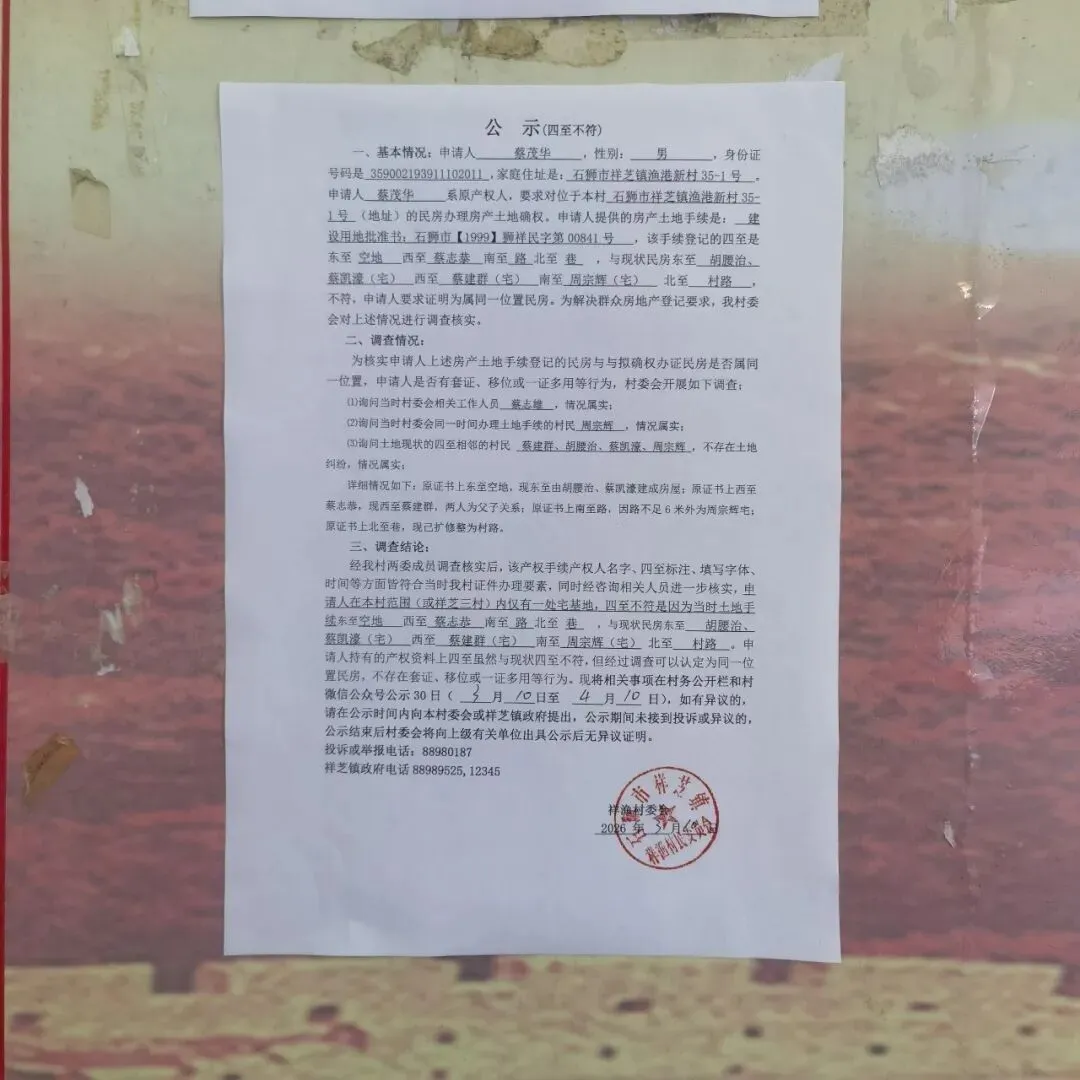 公 示(四至不符)
一、基本情况：申请人 蔡茂华 ，性别： 男 ，身份证
号码是 359002193911102011 ,家庭住址是：石狮市祥芝镇渔港新村 35-1 号 。
申请人 蔡茂华 系原产权人，要求对位于本村 石狮市祥芝镇渔港新村 35-
1 号 （地址）的民房办理房产土地确权。申请人提供的房产土地手续是： 建
设用地批准书：石狮市【1999】狮祥民字第 00841 号 ，该手续登记的四至是
东至 空地 西至 蔡志恭 南至 路 北至 巷 ，与现状民房东至 胡腰治、
蔡凯濠（宅） 西至 蔡建群（宅） 南至 周宗辉（宅） 北至 村路 ，
不符，申请人要求证明为属同一位置民房。为解决群众房地产登记要求，我村委
会对上述情况进行调查核实。
二、调查情况：
为核实申请人上述房产土地手续登记的民房与与拟确权办证民房是否属同
一位置，申请人是否有套证、移位或一证多用等行为，村委会开展如下调查：
⑴询问当时村委会相关工作人员 蔡志雄 ，情况属实；
⑵询问当时村委会同一时间办理土地手续的村民 周宗辉 ，情况属实；
⑶询问土地现状的四至相邻的村民 蔡建群、胡腰治、蔡凯濠、周宗辉 ，不存在土地
纠纷，情况属实；
详细情况如下：原证书上东至空地，现东至由胡腰治、蔡凯濠建成房屋；原证书上西至
蔡志恭，现西至蔡建群，两人为父子关系；原证书上南至路，因路不足 6 米外为周宗辉宅；
原证书上北至巷，现已扩修整为村路。
三、调查结论：
经我村两委成员调查核实后，该产权手续产权人名字、四至标注、填写字体、
时间等方面皆符合当时我村证件办理要素，同时经咨询相关人员进一步核实，申
请人在本村范围（或祥芝三村）内仅有一处宅基地，四至不符是因为当时土地手
续东至空地 西至 蔡志恭 南至 路 北至 巷 ，与现状民房东至 胡腰治、
蔡凯濠（宅） 西至 蔡建群（宅） 南至 周宗辉（宅） 北至 村路 。申
请人持有的产权资料上四至虽然与现状四至不符，但经过调查可以认定为同一位
置民房，不存在套证、移位或一证多用等行为。现将相关事项在村务公开栏和村
微信公众号公示 30 日（ 3 月 10 日至 4 月 10 日），如有异议的，
请在公示时间内向本村委会或祥芝镇政府提出，公示期间未接到投诉或异议的，
公示结束后村委会将向上级有关单位出具公示后无异议证明。
投诉或举报电话：88980187
祥芝镇政府电话 88989525,12345
祥渔村委会
2026 年 3 月